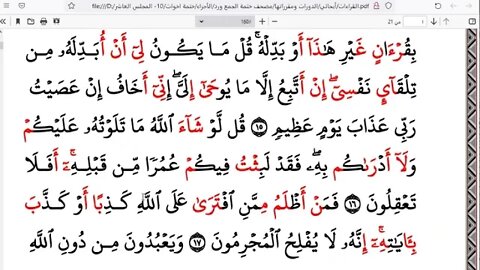 file:///D:/القراءات/أبحاثي/الدورات ومقرراتها/مصحف ختمة الجمع ورد/الأجزاء/ختمة اخوات/10- المجلس العاشر.pdf
من 21
160٪
بِقُرْءَانٍ غَيْرِ هَٰذَآ أَوْ بَدِّلْهُ ۚ قُلْ مَا يَكُونُ لِىٓ أَنْ أُبَدِّلَهُۥ مِن
تِلْقَآىِٕ نَفْسِىٓ ۖ إِنْ أَتَّبِعُ إِلَّا مَا يُوحَىٰٓ إِلَىَّ ۖ إِنِّىٓ أَخَافُ إِنْ عَصَيْتُ
رَبِّى عَذَابَ يَوْمٍ عَظِيمٍ ١٥ قُل لَّوْ شَآءَ ٱللَّهُ مَا تَلَوْتُهُۥ عَلَيْكُمْ
وَلَآ أَدْرَىٰكُم بِهِۦ ۖ فَقَدْ لَبِثْتُ فِيكُمْ عُمُرًا مِّن قَبْلِهِۦٓ ۚ أَفَلَا
تَعْقِلُونَ ١٦ فَمَنْ أَظْلَمُ مِمَّنِ ٱفْتَرَىٰ عَلَى ٱللَّهِ كَذِبًا أَوْ كَذَّبَ
بِـَٔايَٰتِهِۦٓ ۚ إِنَّهُۥ لَا يُفْلِحُ ٱلْمُجْرِمُونَ ١٧ وَيَعْبُدُونَ مِن دُونِ ٱللَّهِ